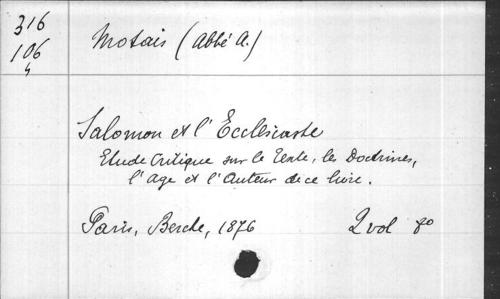 316
106
4
Motais (Abbé A.)
Salomon et l'Ecclésiaste
Etude Critique sur le Texte, les Doctrines,
l'age et l'Auteur de ce livre.
Paris, Berche, 1876 2 vol 8o